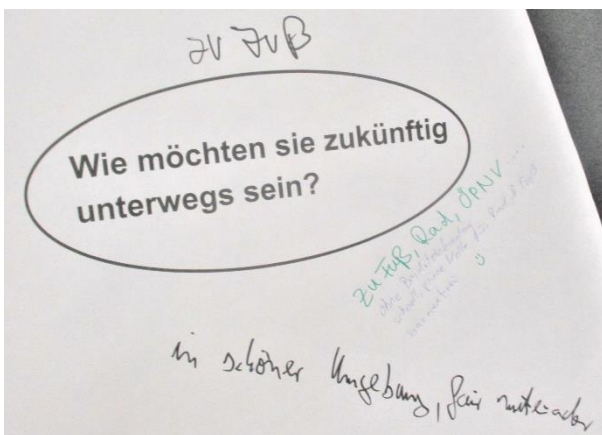 zu Fuß
Wie möchten sie zukünftig
unterwegs sein?
Zu Fuß, Rad, ÖPNV ....
ohne
schnelle für Rad &
in schöner Umgebung, fair miteinander